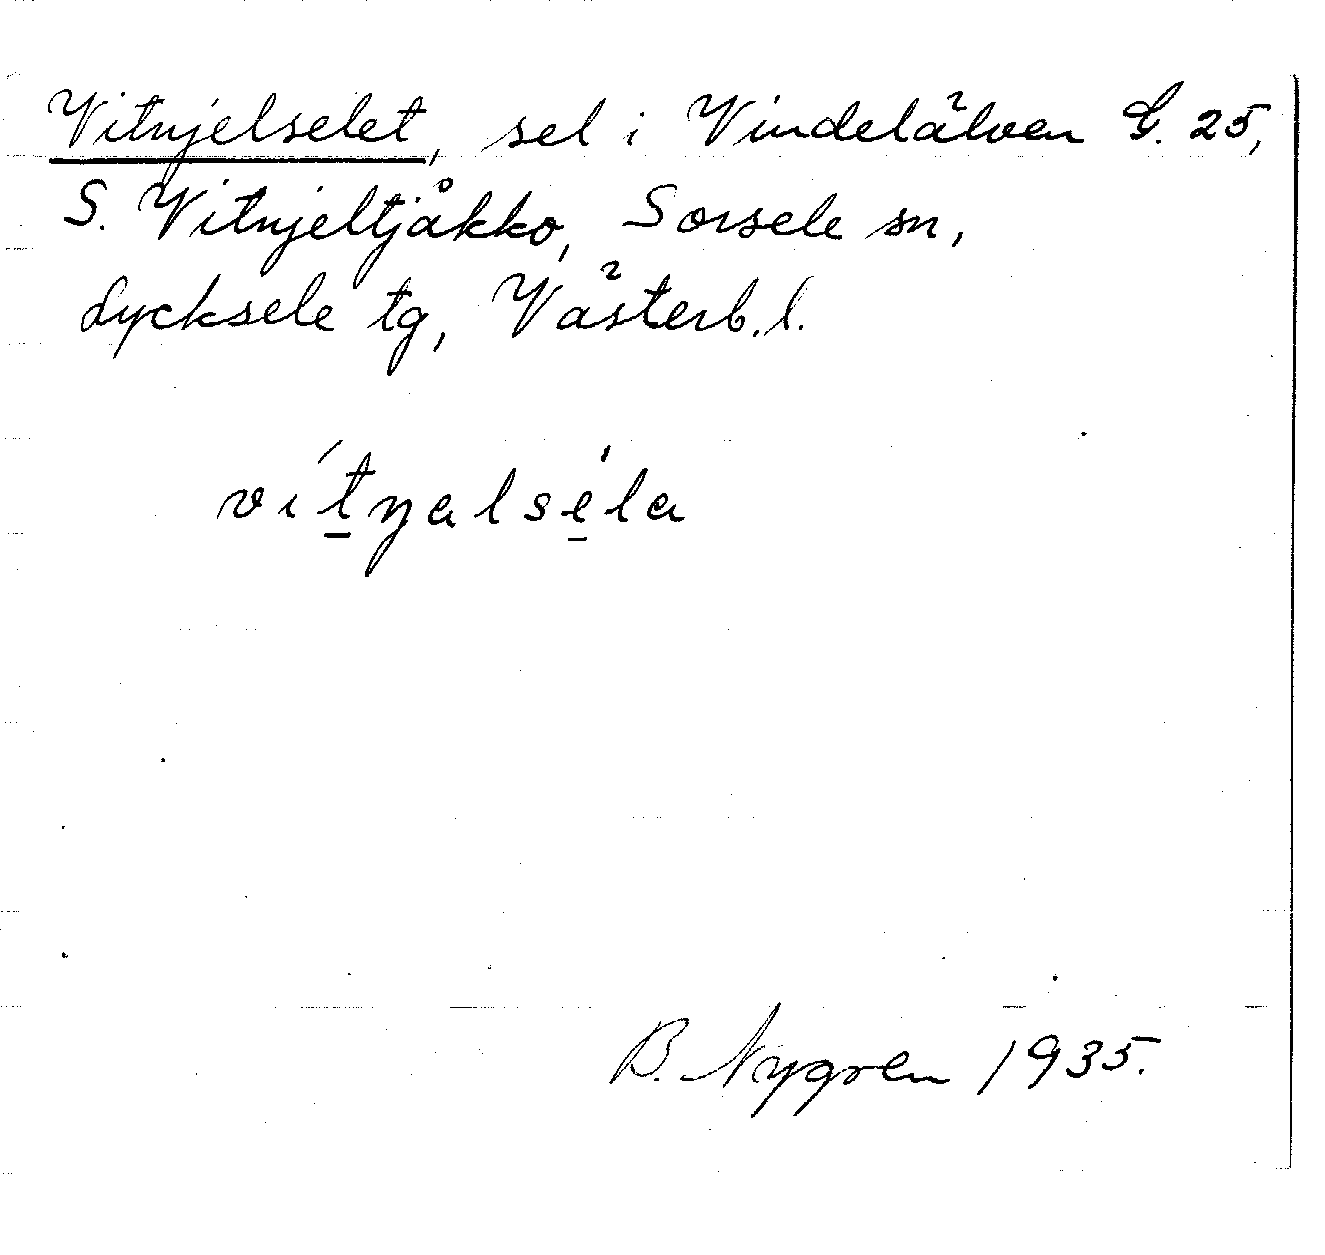 Vitnjelselet, sel i Vindelälven G. 25,
S. Vitnjeltjåkko, Sorsele sn,
Lycksele tg, Västerb. l.
vítŋalséla
B. Nygren 1935.